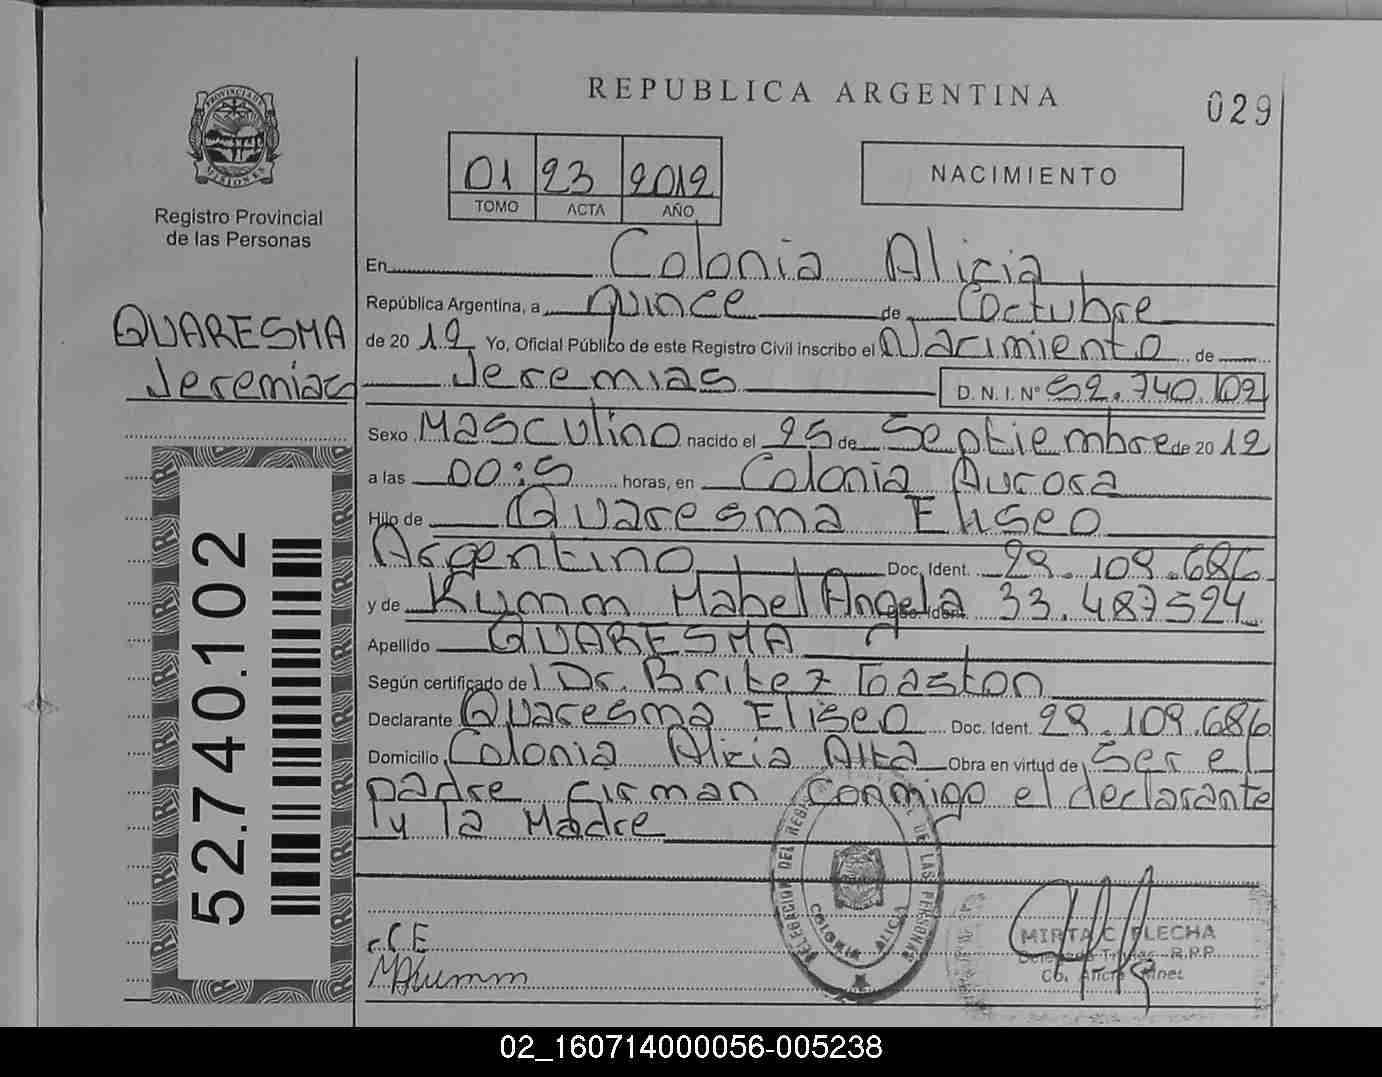 REPUBLICA ARGENTINA
029
PROVINCIA DE
MISIONES
Registro Provincial
de las Personas
01 23 2012
TOMO ACTA AÑO
NACIMIENTO
QUARESMA
Jeremias
52.740.102
En Colonia Alicia
República Argentina, a quince de Octubre
de 2012 Yo, Oficial Público de este Registro Civil inscribo el Nacimiento de
Jeremias D. N. I. Nº 52.740.102
Sexo Masculino nacido el 25 de Septiembre de 2012
a las 00:5 horas, en Colonia Aurora
Hijo de Quaresma Eliseo
Argentino Doc. Ident. 29.109.686
y de Kymm Mabel Angela Doc. Ident. 33.487524
Apellido QUARESMA
Según certificado de Dr. Britez Gaston
Declarante Quaresma Eliseo Doc. Ident. 29.109.686
Domicilio Colonia Alicia Alta Obra en virtud de Ser el
padre firman conmigo el declarante
y la Madre
DELEGACION DEL REGISTRO DE LAS PERSONAS
COLONIA ALICIA
MIRTA C. FLECHA
02_160714000056-005238